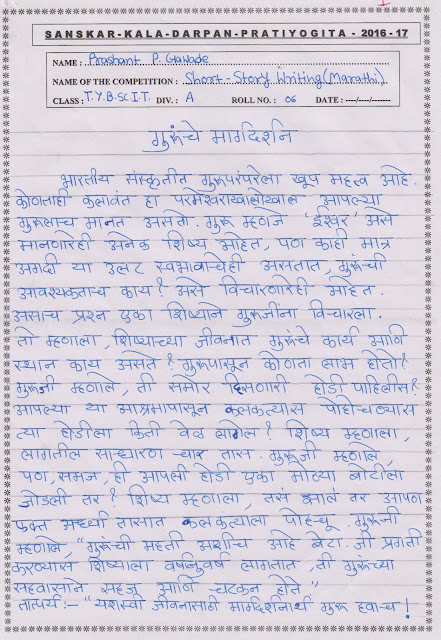 SANSKAR-KALA-DARPAN-PRATIYOGITA - 2016 - 17
NAME : Prashant P. Gawade
NAME OF THE COMPETITION : Short Story Writing (Marathi)
CLASS : T.Y.B.Sc I.T. DIV. : A ROLL NO. : 06 DATE : ----/----/-------
गुरूंचे मार्गदर्शन
भारतीय संस्कृतीत गुरूपरंपरेला खूप महत्त्व आहे.
कोणताही कलावंत हा परमेश्वराखालोखाल आपल्या
गुरूलाच मानत असतो. गुरू म्हणजे 'ईश्वर' असे
मानणारेही अनेक शिष्य आहेत, पण काही मात्र
अगदी या उलट स्वभावाचेही असतात, गुरूंची
आवश्यकताच काय? असे विचारणारेही आहेत.
असाच प्रश्न एका शिष्याने गुरूजींना विचारला.
तो म्हणाला, शिष्याच्या जीवनात गुरूंचे कार्य आणि
स्थान काय असते? गुरूपासून कोणता लाभ होतो?
गुरूजी म्हणाले, ती समोर दिसणारी होडी पाहिलीस?
आपल्या या आश्रमापासून कलकत्त्यास पोहोचण्यास
त्या होडीला किती वेळ लागेल? शिष्य म्हणाला,
लागतील साधारण चार तास. गुरूजी म्हणाले,
पण, समज, ही आपली होडी एका मोठ्या बोटीला
जोडली तर? शिष्य म्हणाला, तसं झालं तर आपण
फक्त अर्ध्या तासात कलकत्त्याला पोहचू. गुरूजी
म्हणाले, "गुरूंची महती अशीच आहे बेटा. जी प्रगती
करण्यास शिष्याला वर्षानुवर्ष लागतात, ती गुरूच्या
सहवासाने सहज आणि चटकन होते"
तात्पर्य:- "यशस्वी जीवनासाठी मार्गदर्शनार्थ गुरू हवाच!